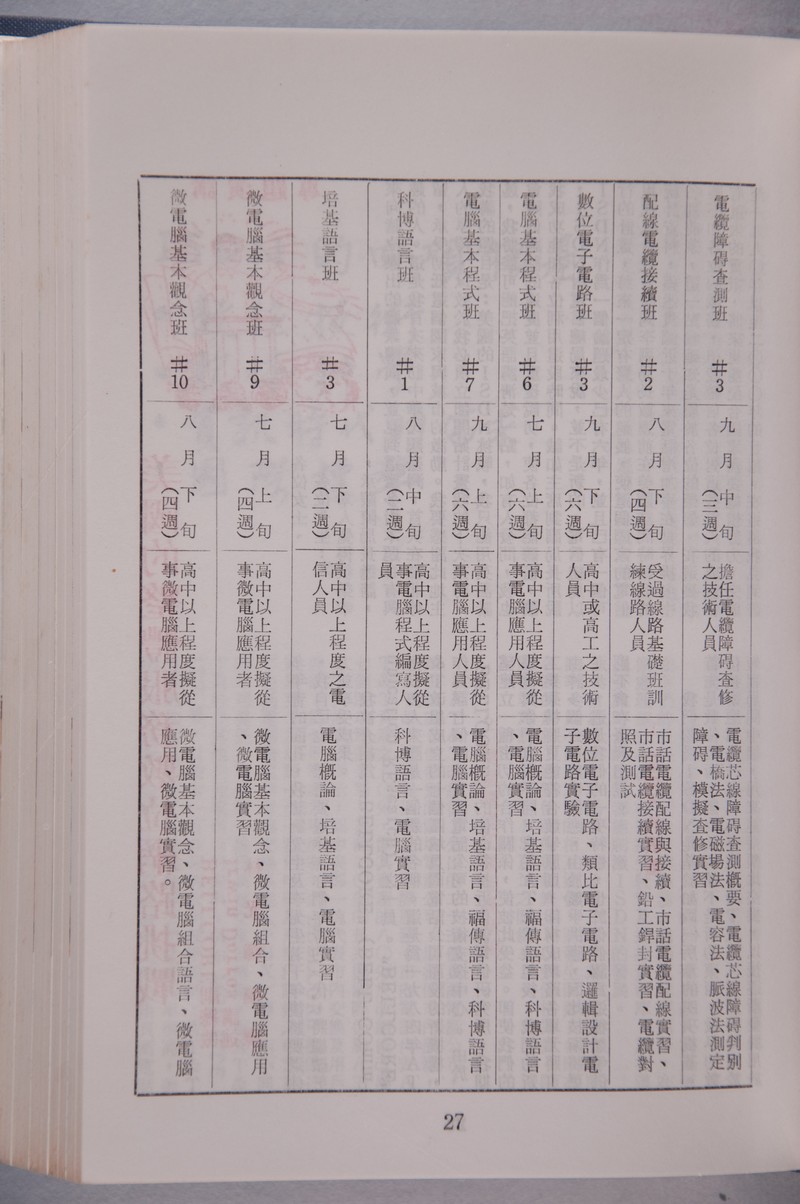 電纜障碍查測班 #3
九月中旬
(三週)
擔任電纜障碍查修
之技術人員
電纜芯線障碍查測概要、電纜芯線障碍判別
、電橋法、電磁場法、電容法、脈波法測定
障碍、模擬查修實習
配線電纜接續班 #2
八月下旬
(四週)
受過線路基礎班訓
練線路人員
市話電纜配線與接續、市話電纜配線實習、
市話電纜接續實習、鉛工銲封實習、電纜對
照及測試
數位電子電路班 #3
九月下旬
(六週)
高中或高工之技術
人員
數位電子電路、類比電子電路、邏輯設計電
子電路實驗
電腦基本程式班 #6
七月上旬
(六週)
高中以上程度擬從
事電腦應用人員
電腦概論、培基語言、福傳語言、科博語言
、電腦實習
電腦基本程式班 #7
九月上旬
(六週)
高中以上程度擬從
事電腦應用人員
電腦概論、培基語言、福傳語言、科博語言
、電腦實習
科博語言班 #1
八月中旬
(二週)
高中以上程度擬從
事電腦程式編寫人
員
科博語言、電腦實習
培基語言班 #3
七月下旬
(二週)
高中以上程度之電
信人員
電腦概論、培基語言、電腦實習
微電腦基本觀念班 #9
七月上旬
(四週)
高中以上程度擬從
事微電腦應用者
微電腦基本觀念、微電腦組合、微電腦應用
、微電腦實習
微電腦基本觀念班 #10
八月下旬
(四週)
高中以上程度擬從
事微電腦應用者
微電腦基本觀念、微電腦組合語言、微電腦
應用、微電腦實習。
27